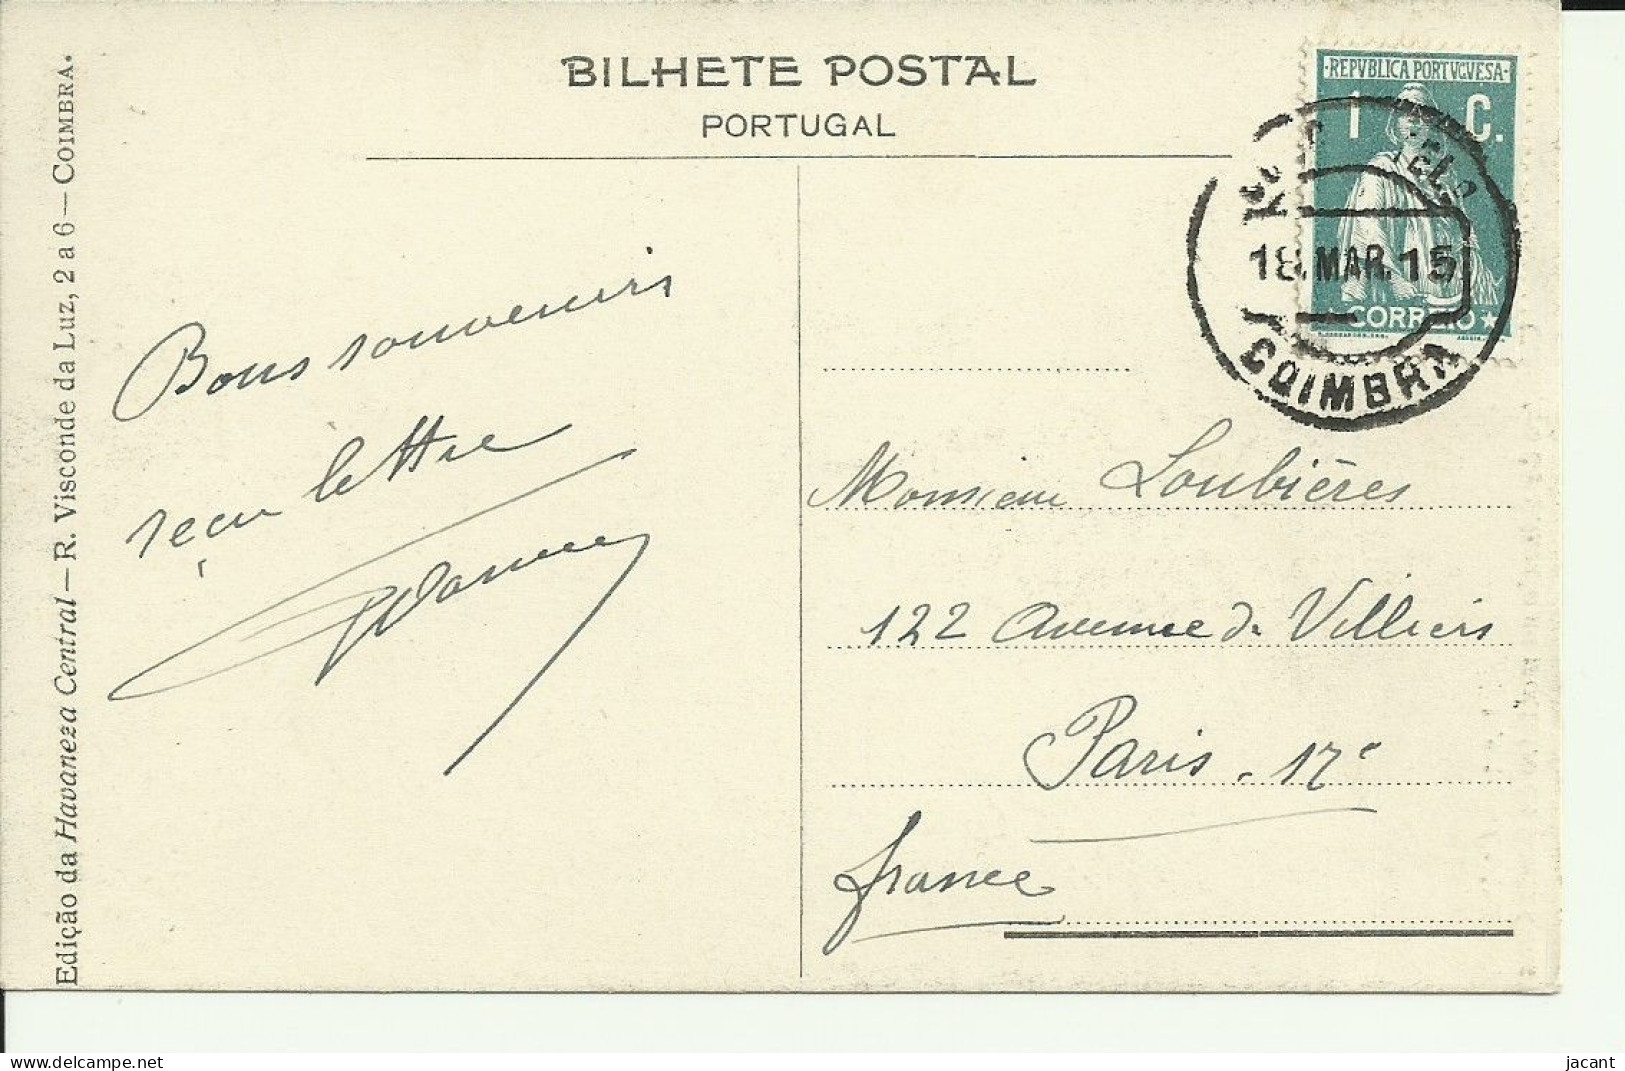 BILHETE POSTAL
PORTUGAL
REPVBLICA PORTVGVESA
1 C.
CORREIO
18. MAR. 15
COIMBRA
Edição da Havaneza Central — R. Visconde da Luz, 2 a 6 — COIMBRA.
Bons souvenirs
reçu lettre
Monsieur Loubières
122 Avenue de Villiers
Paris. 17e
france
delcampe.net
jacant